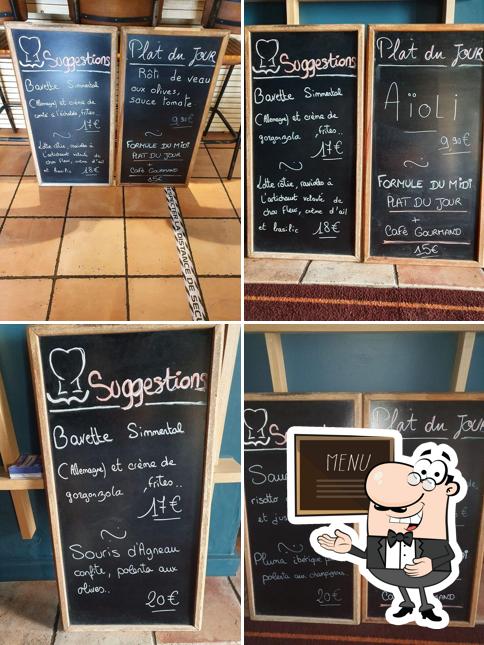 Suggestions
Bavette Simmental
(Allemagne) et crème de
comté à l'échalote, frites..
17€
Lotte rôtie, ravioles à
l'artichaut velouté de
chou fleur, crème d'ail
et basilic 18€
Plat du JOUR
Rôti de veau
aux olives,
sauce tomate
9,90€
FORMULE DU MIDI
PLAT DU JOUR
+
Café GOURMAND
15€
LA DISTANCE DE SECU
Suggestions
Bavette Simmental
(Allemagne) et crème de
gorgonzola, frites..
17€
Lotte rôtie, ravioles à
l'artichaut velouté de
chou fleur, crème d'ail
et basilic 18€
Plat du JOUR
AïOLi
9,90€
FORMULE DU MiDi
PLAT DU JOUR
+
CAFÉ GOURMAND
15€
Suggestions
Bavette Simmental
(Allemagne) et crème de
gorgonzola, frites..
17€
Souris d'Agneau
confite, polenta aux
olives..
20€
Plat du JOUR
risotto
et jus
Pluma ibérique
polenta aux champignons..
20€
MENU